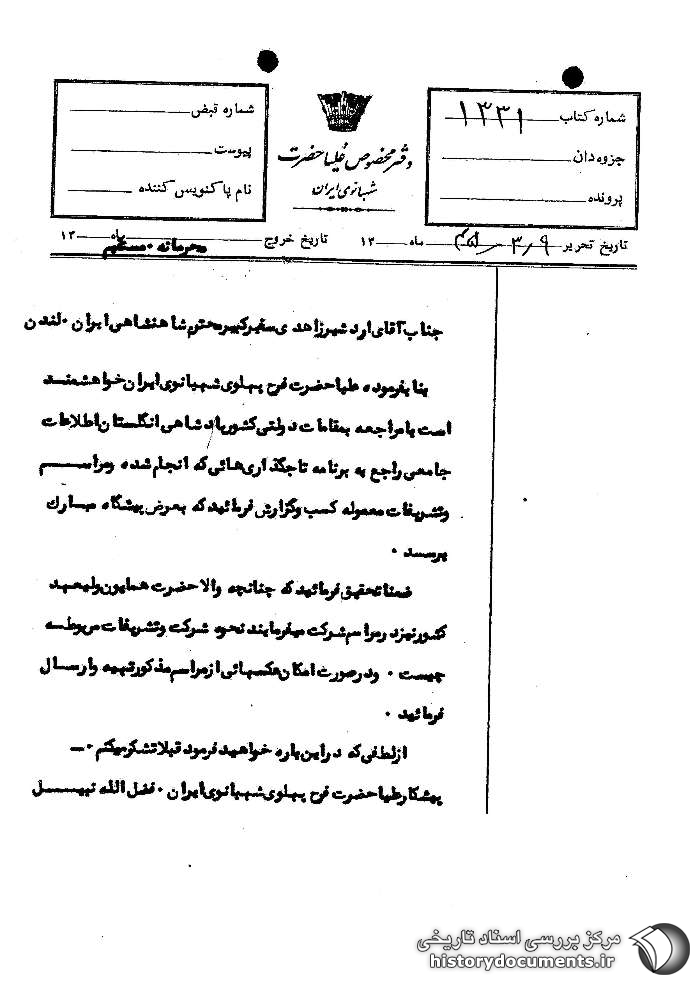 شماره کتاب ۱۳۳۱
جزوه دان
پرونده
دفتر مخصوص علیا حضرت
شهبانوی ایران
شماره قبض
پیوست
نام پاکنویس کننده
تاریخ تحریر ۹ ر ۳ ر ماه ۱۳
تاریخ خروج ماه ۱۳
محرمانه ۰ مستقیم
جناب آقای اردشیر زاهدی سفیر کبیر محترم شاهنشاهی ایران ۰ لندن
بنا بفرموده علیا حضرت فرح پهلوی شهبانوی ایران خواهشمند
است با مراجعه بمقامات دولتی کشور پادشاهی انگلستان اطلاعات
جامعی راجع به برنامه تاجگذاری هائی که انجام شده ومراسم
وتشریفات معموله کسب وگزارش فرمائید که بعرض پیشگاه مبارک
برسد ۰
ضمنا تحقیق فرمائید که چنانچه والا حضرت همایون ولیعهد
کشور نیز در مراسم شرکت میفرمایند نحوه شرکت وتشریفات مربوطه
چیست ۰ ودر صورت امکان عکسهائی از مراسم مذکور تهیه وارسال
فرمائید ۰
از لطفی که در این باره خواهید فرمود قبلا تشکر میکنم ۰ـ
پیشکار علیا حضرت فرح پهلوی شهبانوی ایران ۰ فضل الله نبیل
مرکز بررسی اسناد تاریخی
historydocuments.ir